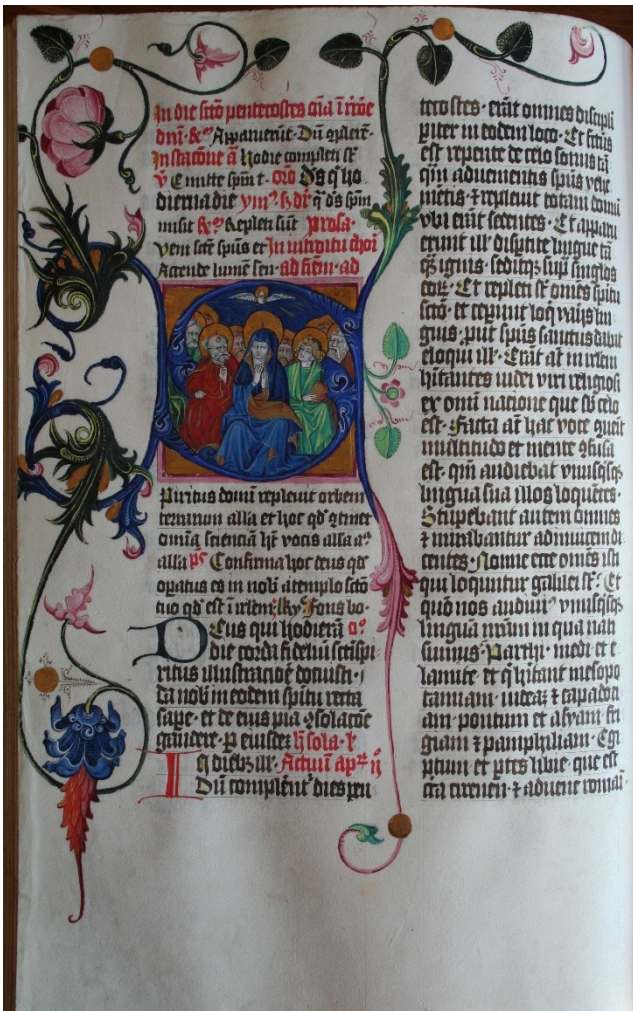 In die scto pentecostes oia i
dni. Apparuerut. Du
In stacone a. hodie completi st
V Emitte spm t. oro ds q ho
dierna die ym. q ds spm
misit Repleti sut prosa.
veni scte spus et In introitu chori
Accende lumen sen. ad fiem. ad
Spiritus domini repleuit orbem
terrarum alla et hoc qd gtinet
omia scienciā ht vocis alla a
alla ps Confirma hoc deus qd
opatus es in nob a templo scto
tuo qd est i irlem. ky. Fons bo.
Deus qui hodierā o
die corda fideliū sctispi
ritus illustracōe docuisti.
da nob in eodem spiritu recta
sape. et de eius pia gsolacōe
gaudere. p eiusdem sola.
I dieb ill. Actuū ap
Dū complerēt dies pen
tecostes. erāt omnes discipli
piter in eodem loco. Et fctus
est repente de celo sonus tā
qm aduenientis spus vehe
mētis. repleuit totam domū
vbi erāt sedentes. Et apparu
erunt ill dispite lingue tā
ignis. seditq sup singlos
eor. Et repleti st omēs spiritu
scto. et cepunt loq varijs lin
guis. put spus sanctus dabat
eloqui ill. Erāt at in irlem
hitantes iudei viri religiosi
ex omi nacione que sb celo
est. Facta at hac voce quenit
multitudo et mente gfusa
est. qm audiebat vnusqsq
lingua sua illos loquētes.
Stupebant autem omnes
mirabantur adinuicem di
centes. Nonne ecce omēs isti
qui loquntur galilei st. Et
quō nos audiui vnusqsq
linguā nrām in qua nati
sumus. Parthi. medi et e
lamite. et q hitant mesopo
tamiam. iudeā capadoci
am. pontum et asyam. fri
giam pamphiliam. Egi
ptum et ptes libie. que est
circa cirenen. aduene romāi.